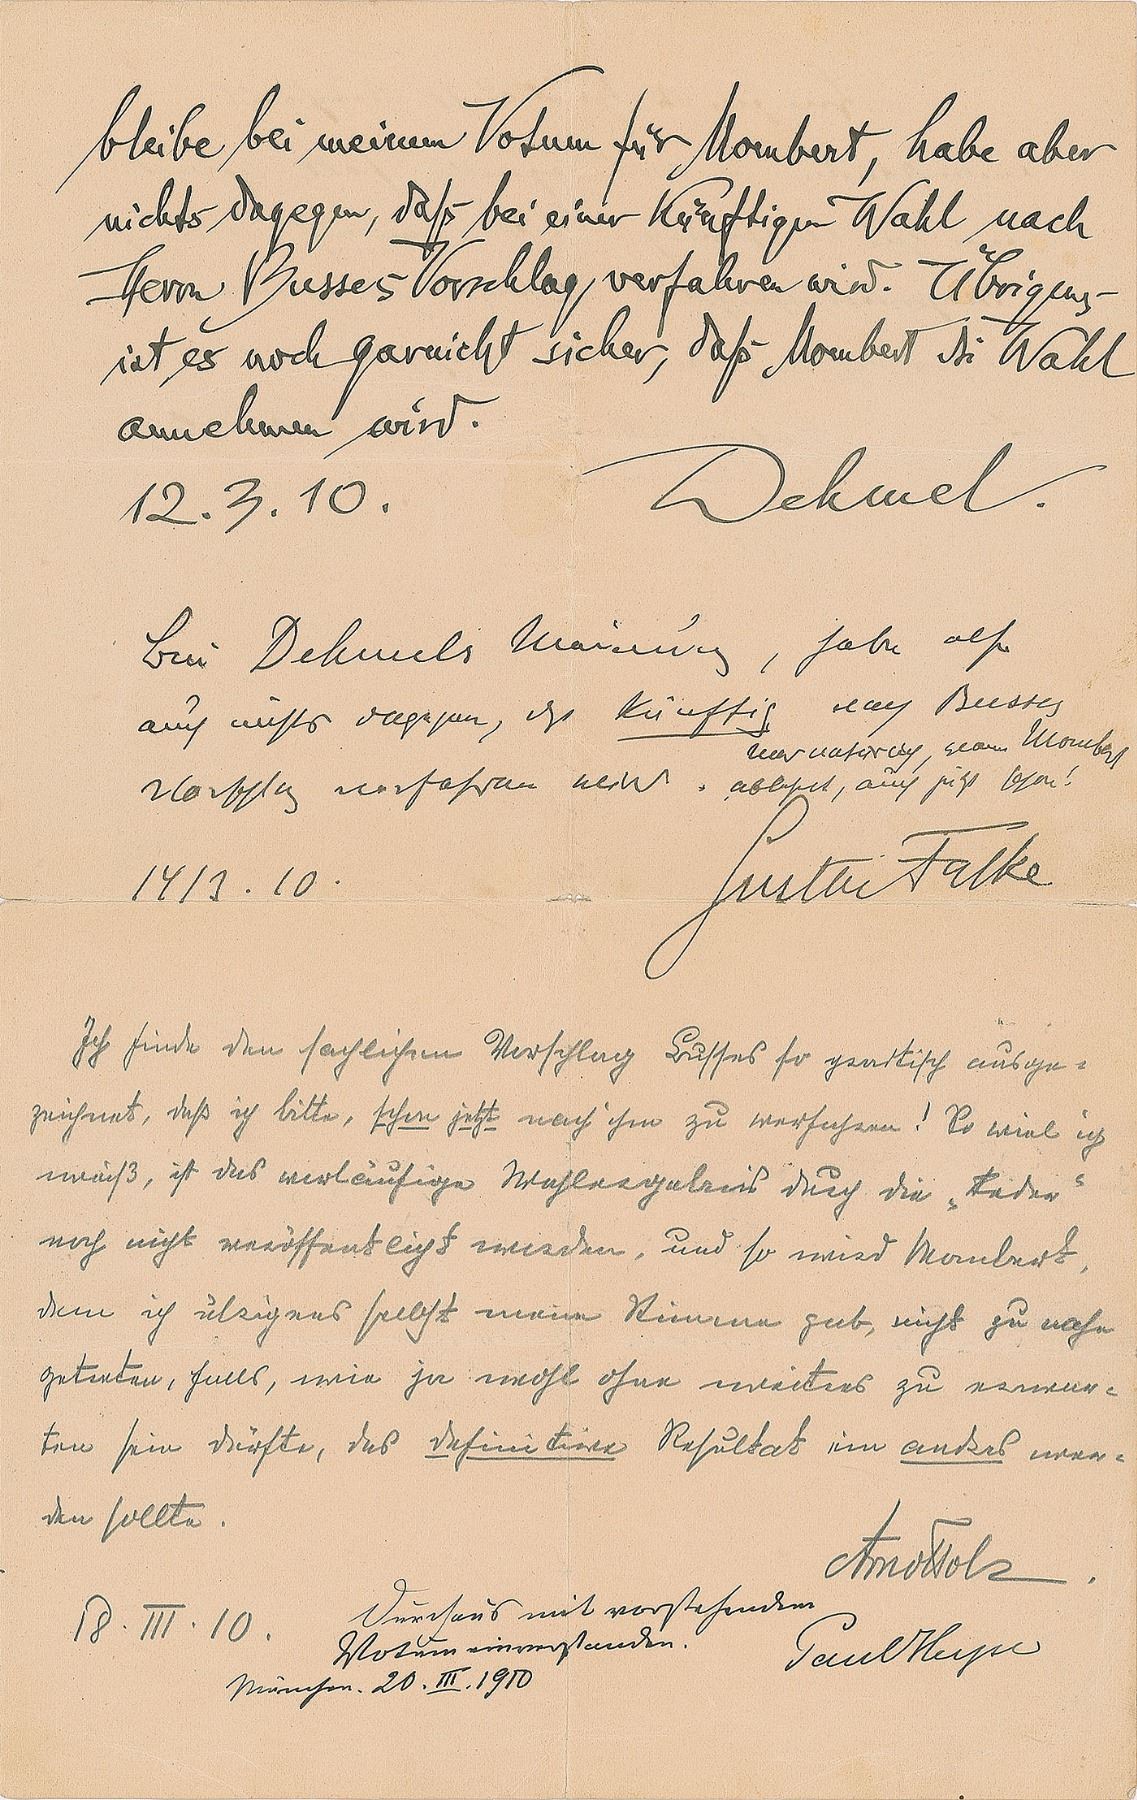 bleibe bei meinem Votum für Mombert, habe aber
nichts dagegen, daß bei einer künftigen Wahl nach
Herrn Busses Vorschlag verfahren wird. Übrigens
ist es noch garnicht sicher, daß Mombert die Wahl
annehmen wird.
12.3.10. Dehmel.
Bin Dehmels Meinung, habe also
auch nichts dagegen, daß künftig nach Busses
Vorschlag verfahren wird.
wenn Mombert
ablehnt, auch jetzt schon!
14/3.10. Gustav Falke
Ich finde den sachlichen Vorschlag Busses so praktisch ausge-
zeichnet, daß ich bitte, schon jetzt nach ihm zu verfahren! So viel ich
weiß, ist das vorläufige Wahlergebnis durch die „Feder"
noch nicht veröffentlicht worden, und so wird Mombert,
dem ich übrigens selbst meine Stimme gab, nicht zu nahe
getreten, falls, wie ja wohl ohne weitres zu erwar-
ten sein dürfte, das definitive Resultat ein andres wer-
den sollte.
Arno Holz.
18.III.10.
Durchaus mit vorstehendem
Votum einverstanden.
Paul Heyse
München. 20.III.1910